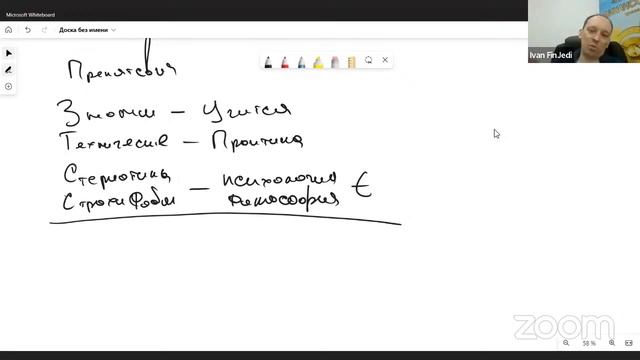 Microsoft Whiteboard
Доска без имени
Ivan FinJedi
Препятствия
Знании — Учится
Технические — Практика
Стереотипы
Страхи Фобии — психология €
философия
zoom
58 %